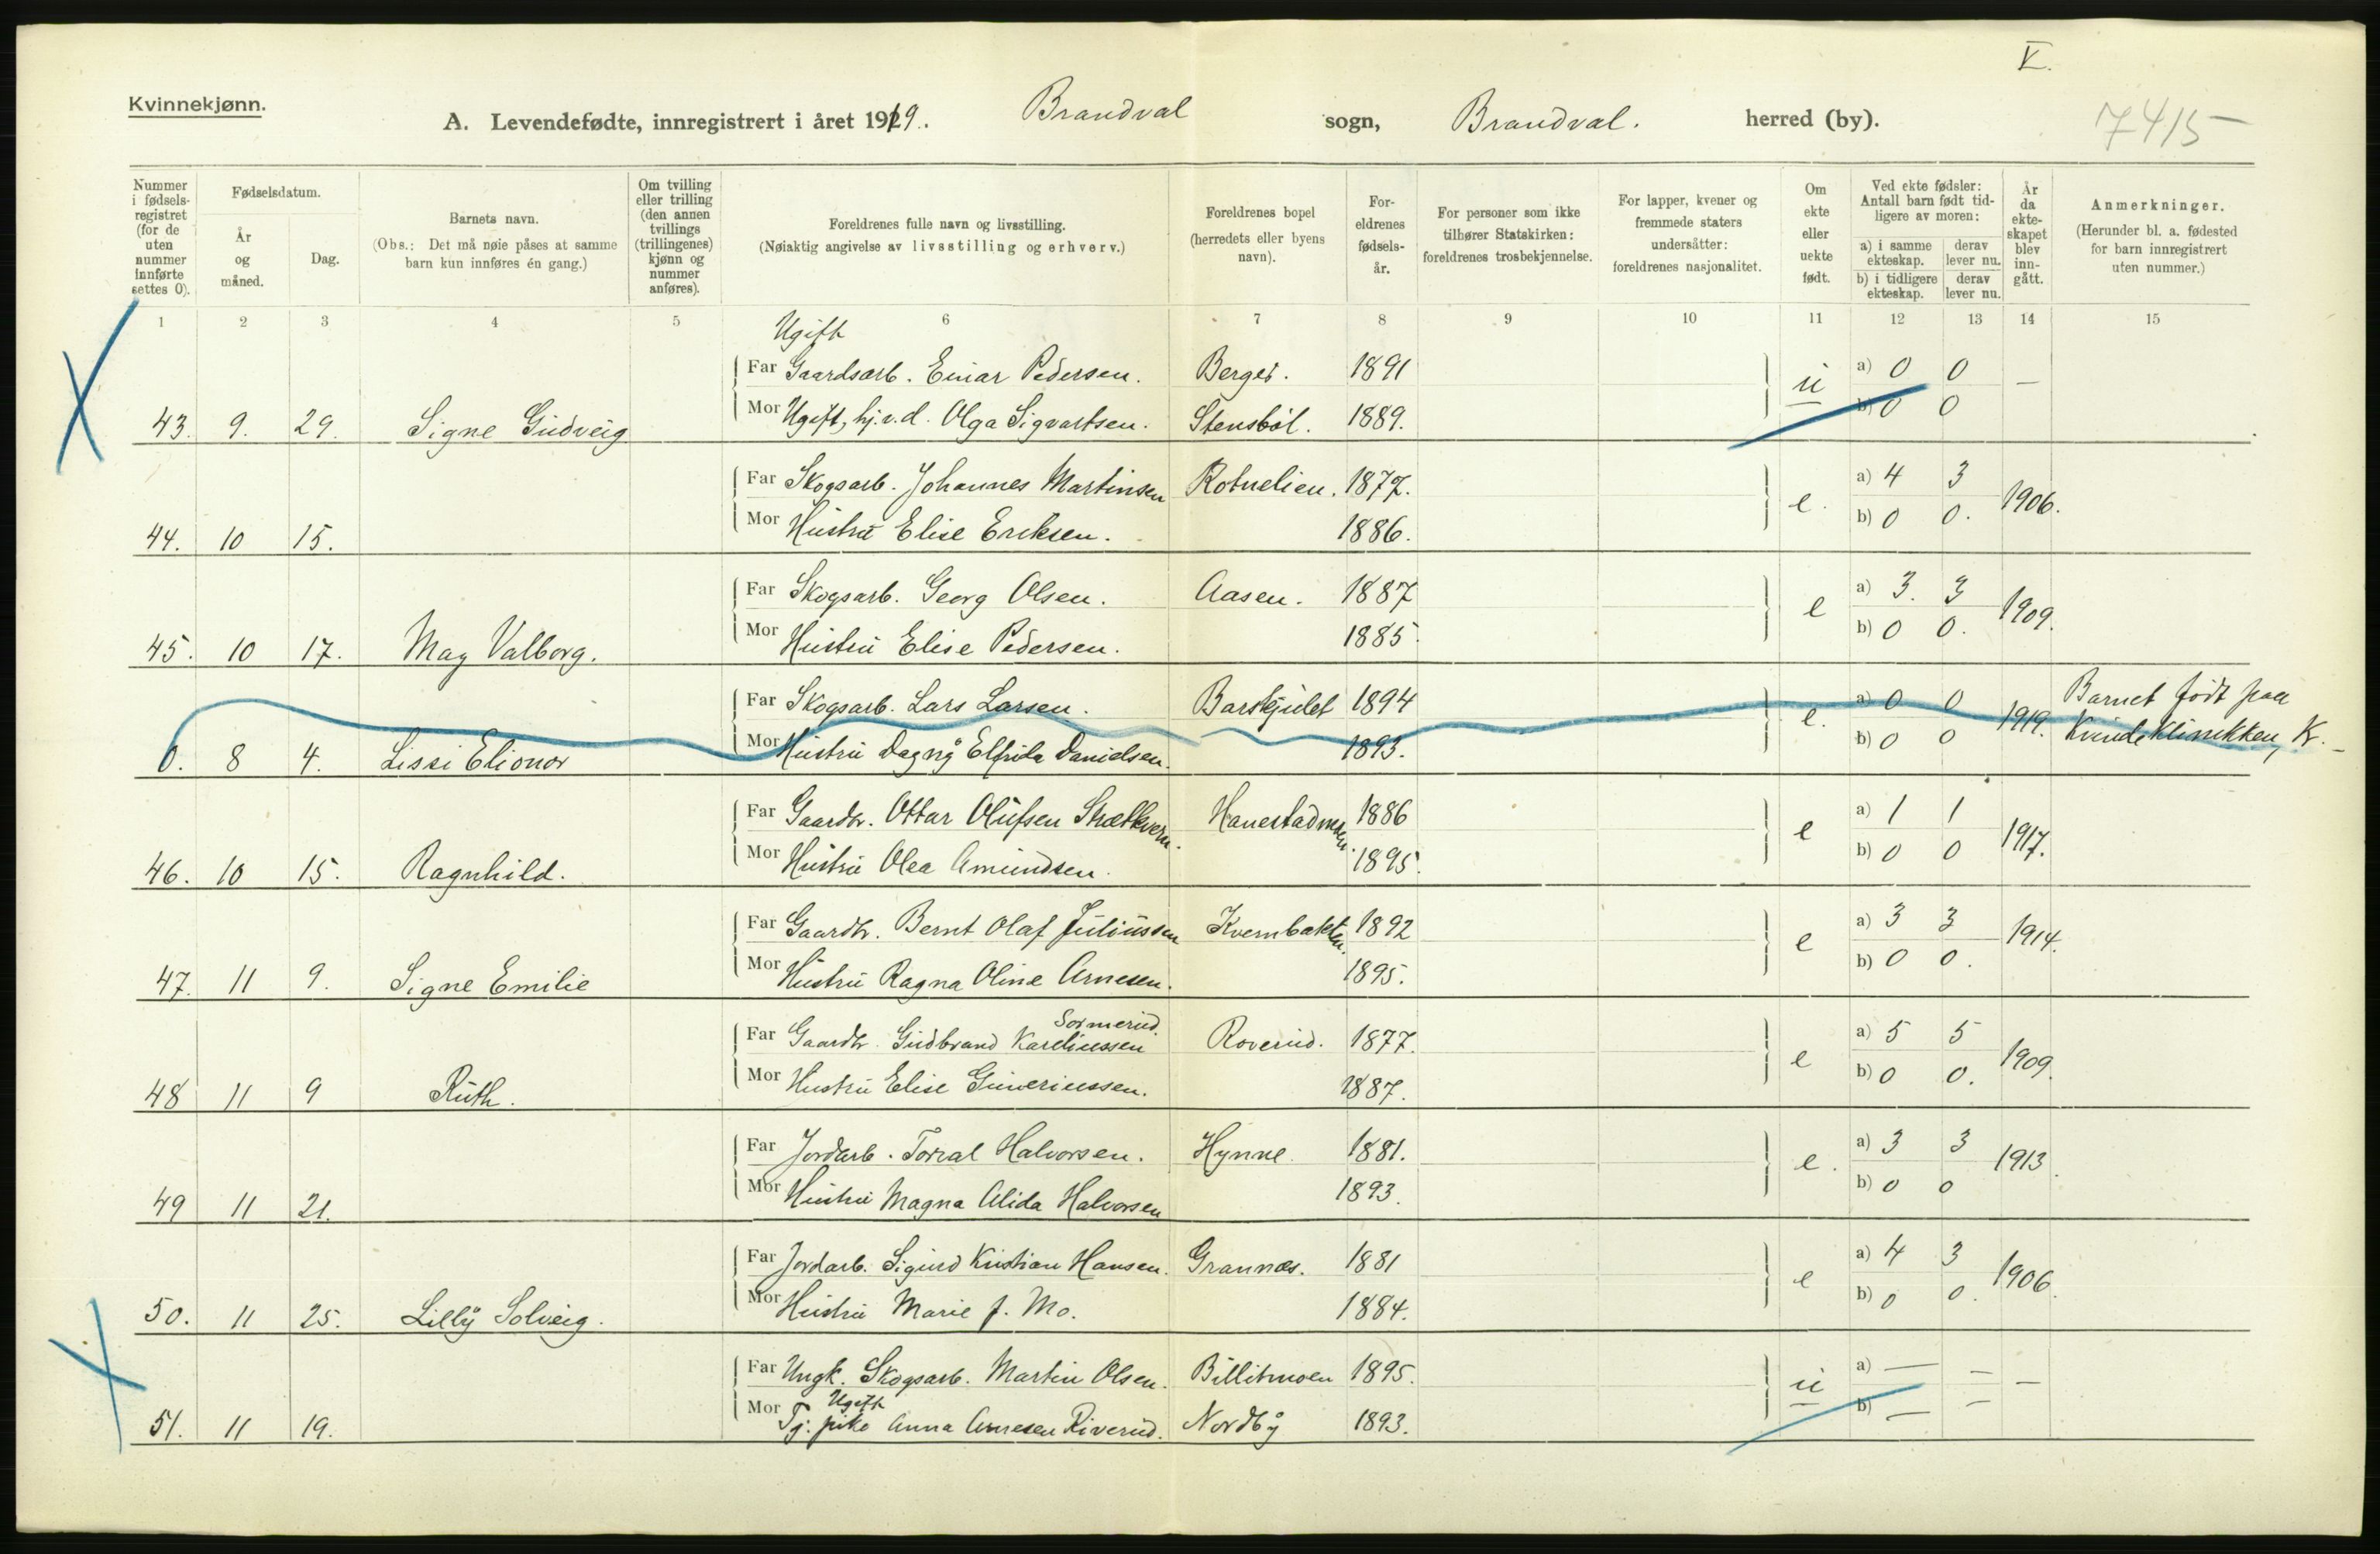 V.
Kvinnekjønn.
A. Levendefødte, innregistrert i året 1919. Brandval sogn, Brandval. herred (by).
7415
Nummer i fødsels-registret (for de uten nummer innførte settes 0).
Fødselsdatum.
År og måned.
Dag.
Barnets navn.
(Obs.: Det må nøie påses at samme barn kun innføres én gang.)
Om tvilling eller trilling (den annen tvillings (trillingenes) kjønn og nummer anføres).
Foreldrenes fulle navn og livsstilling.
(Nøiaktig angivelse av livsstilling og erhverv.)
Foreldrenes bopel (herredets eller byens navn).
For-eldrenes fødsels-år.
For personer som ikke tilhører Statskirken: foreldrenes trosbekjennelse.
For lapper, kvener og fremmede staters undersåtter: foreldrenes nasjonalitet.
Om ekte eller uekte født.
Ved ekte fødsler: Antall barn født tid-ligere av moren:
a) i samme ekteskap.
derav lever nu.
b) i tidligere ekteskap.
derav lever nu.
År da ekte-skapet blev inn-gått.
Anmerkninger.
(Herunder bl. a. fødested for barn innregistrert uten nummer.)
1 2 3 4 5 6 7 8 9 10 11 12 13 14 15
Ugift
Far Gaardsarb. Einar Pedersen. Berger. 1891 u a) 0 0 —
43. 9. 29. Signe Gudveig Mor Ugift, hj.v.d. Olga Sigvartsen. Stensböl. 1889. b) 0 0
Far Skogsarb. Johannes Martinsen Rotnelien. 1877. e. a) 4 3 1906.
44. 10 15. Mor Hustru Elise Eriksen. 1886. b) 0 0.
Far Skogsarb. Georg Olsen. Aasen. 1887 e a) 3. 3 1909.
45. 10 17. May Valborg. Mor Hustru Elise Pedersen. 1885. b) 0 0.
Far Skogsarb. Lars Larsen. 1894 e. a) 0 0 1919. Barnet födt paa
0. 8 4. Lissi Elionor Mor Hustru Dagny Elfrida Danielsen. 1893. b) 0 0 Kvindeklinikken, K.
Far Gaardbr. Ottar Olufsen 1886 e a) 1 1 1917.
46. 10 15. Ragnhild. Mor Hustru Olea Amundsen. 1895. b) 0 0
Far Gaardbr. Bernt Olaf Juliussen Kvernbakken. 1892 e a) 3 3 1914.
47. 11 9. Signe Emilie Mor Hustru Ragna Oline Arnesen. 1895. b) 0 0.
Sormerud.
Far Gaardbr. Gudbrand Kareliussen Roverud. 1877. e a) 5 5 1909.
48 11 9 Ruth. Mor Hustru Elise Guneriussen. 1887. b) 0 0.
Far Jordarb. Torval Halvorsen. Hynne. 1881. e. a) 3 3 1913.
49 11 21. Mor Hustru Magna Alida Halvorsen 1893. b) 0 0
Far Jordarb. Sigurd Kristian Hansen. Grannæs. 1881 e a) 4 3 1906.
50. 11 25. Lilly Solveig. Mor Hustru Marie f. Mo. 1884. b) 0 0.
Far Ungk. Skogsarb. Martin Olsen. Billitmoen 1895. u a) — — —
Ugift
51. 11 19. Mor Tj. pike Anna Arnesen Riverud. Nordby 1893. b) — —